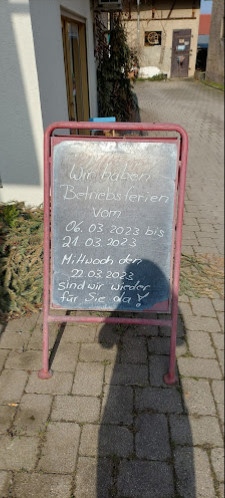 Wir haben
Betriebsferien
Vom
06.03.2023 bis
21.03.2023
Mittwoch den
22.03.2023
sind wir wieder
für Sie da!